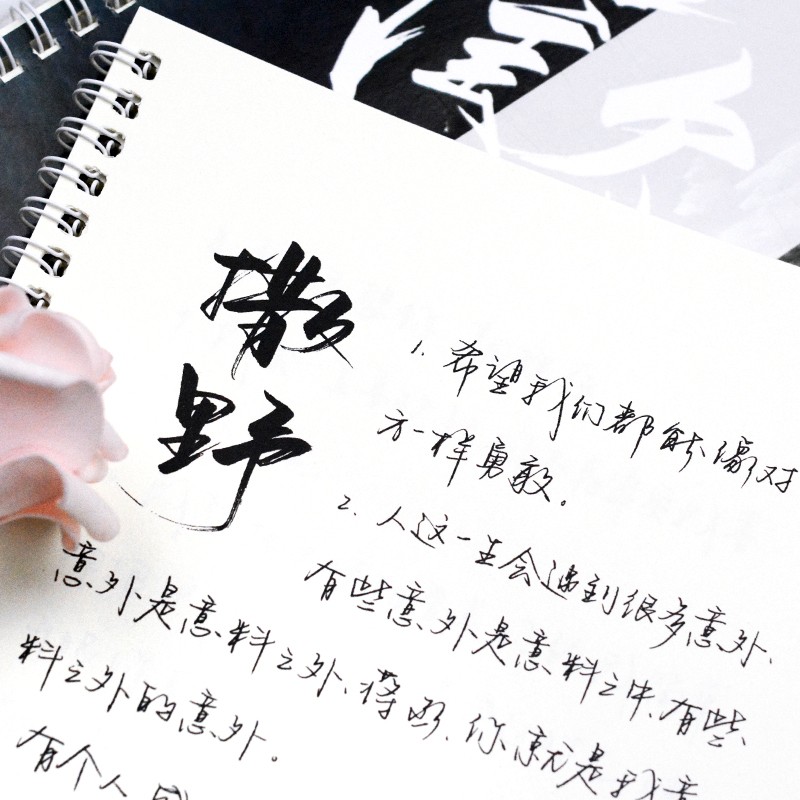 撒
野
1. 希望我们都能像对
方一样勇敢。
2. 人这一生会遇到很多意外、
有些意外是意料之中、有些
意外是意料之外、蒋丞、你就是我意
料之外的意外。
有个人